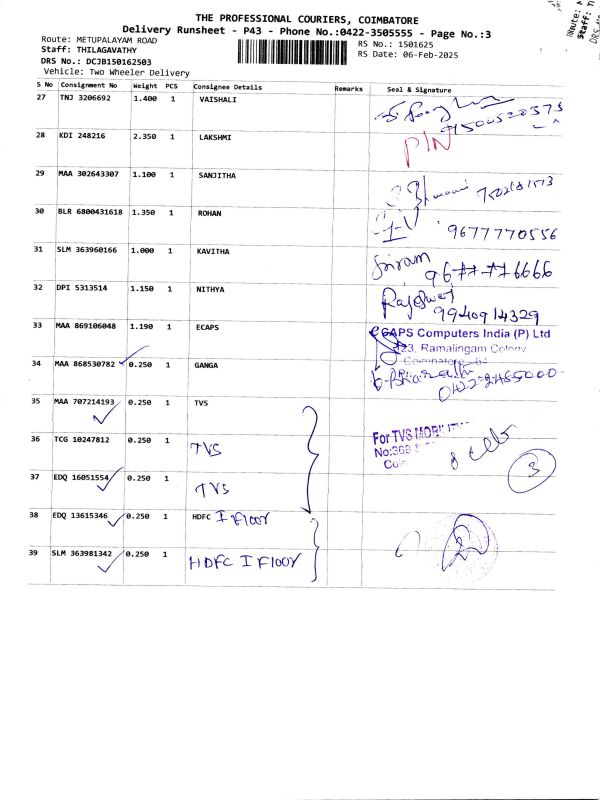 THE PROFESSIONAL COURIERS, COIMBATORE
Delivery Runsheet - P43 - Phone No.:0422-3505555 - Page No.:3
Route: METUPALAYAM ROAD
RS No.: 1501625
Staff: THILAGAVATHY
RS Date: 06-Feb-2025
DRS No.: DCJB150162503
Vehicle: Two Wheeler Delivery
S No Consignment No Weight PCS Consignee Details Remarks Seal & Signature
27 TNJ 3206692 1.400 1 VAISHALI
28 KDI 248216 2.350 1 LAKSHMI P/N
29 MAA 302643307 1.100 1 SANJITHA
30 BLR 6800431618 1.350 1 ROHAN 9677770556
31 SLM 363960166 1.000 1 KAVITHA Sriram 9677776666
32 DPI 5313514 1.150 1 NITHYA 9940914329
33 MAA 869106048 1.190 1 ECAPS eCAPS Computers India (P) Ltd
Ramalingam Colony
34 MAA 868530782 0.250 1 GANGA
35 MAA 707214193 0.250 1 TVS
36 TCG 10247812 0.250 1 TVS For TVS
37 EDQ 16051554 0.250 1 TVS 3
38 EDQ 13615346 0.250 1 HDFC I Floor
39 SLM 363981342 0.250 1 HDFC I Floor 2